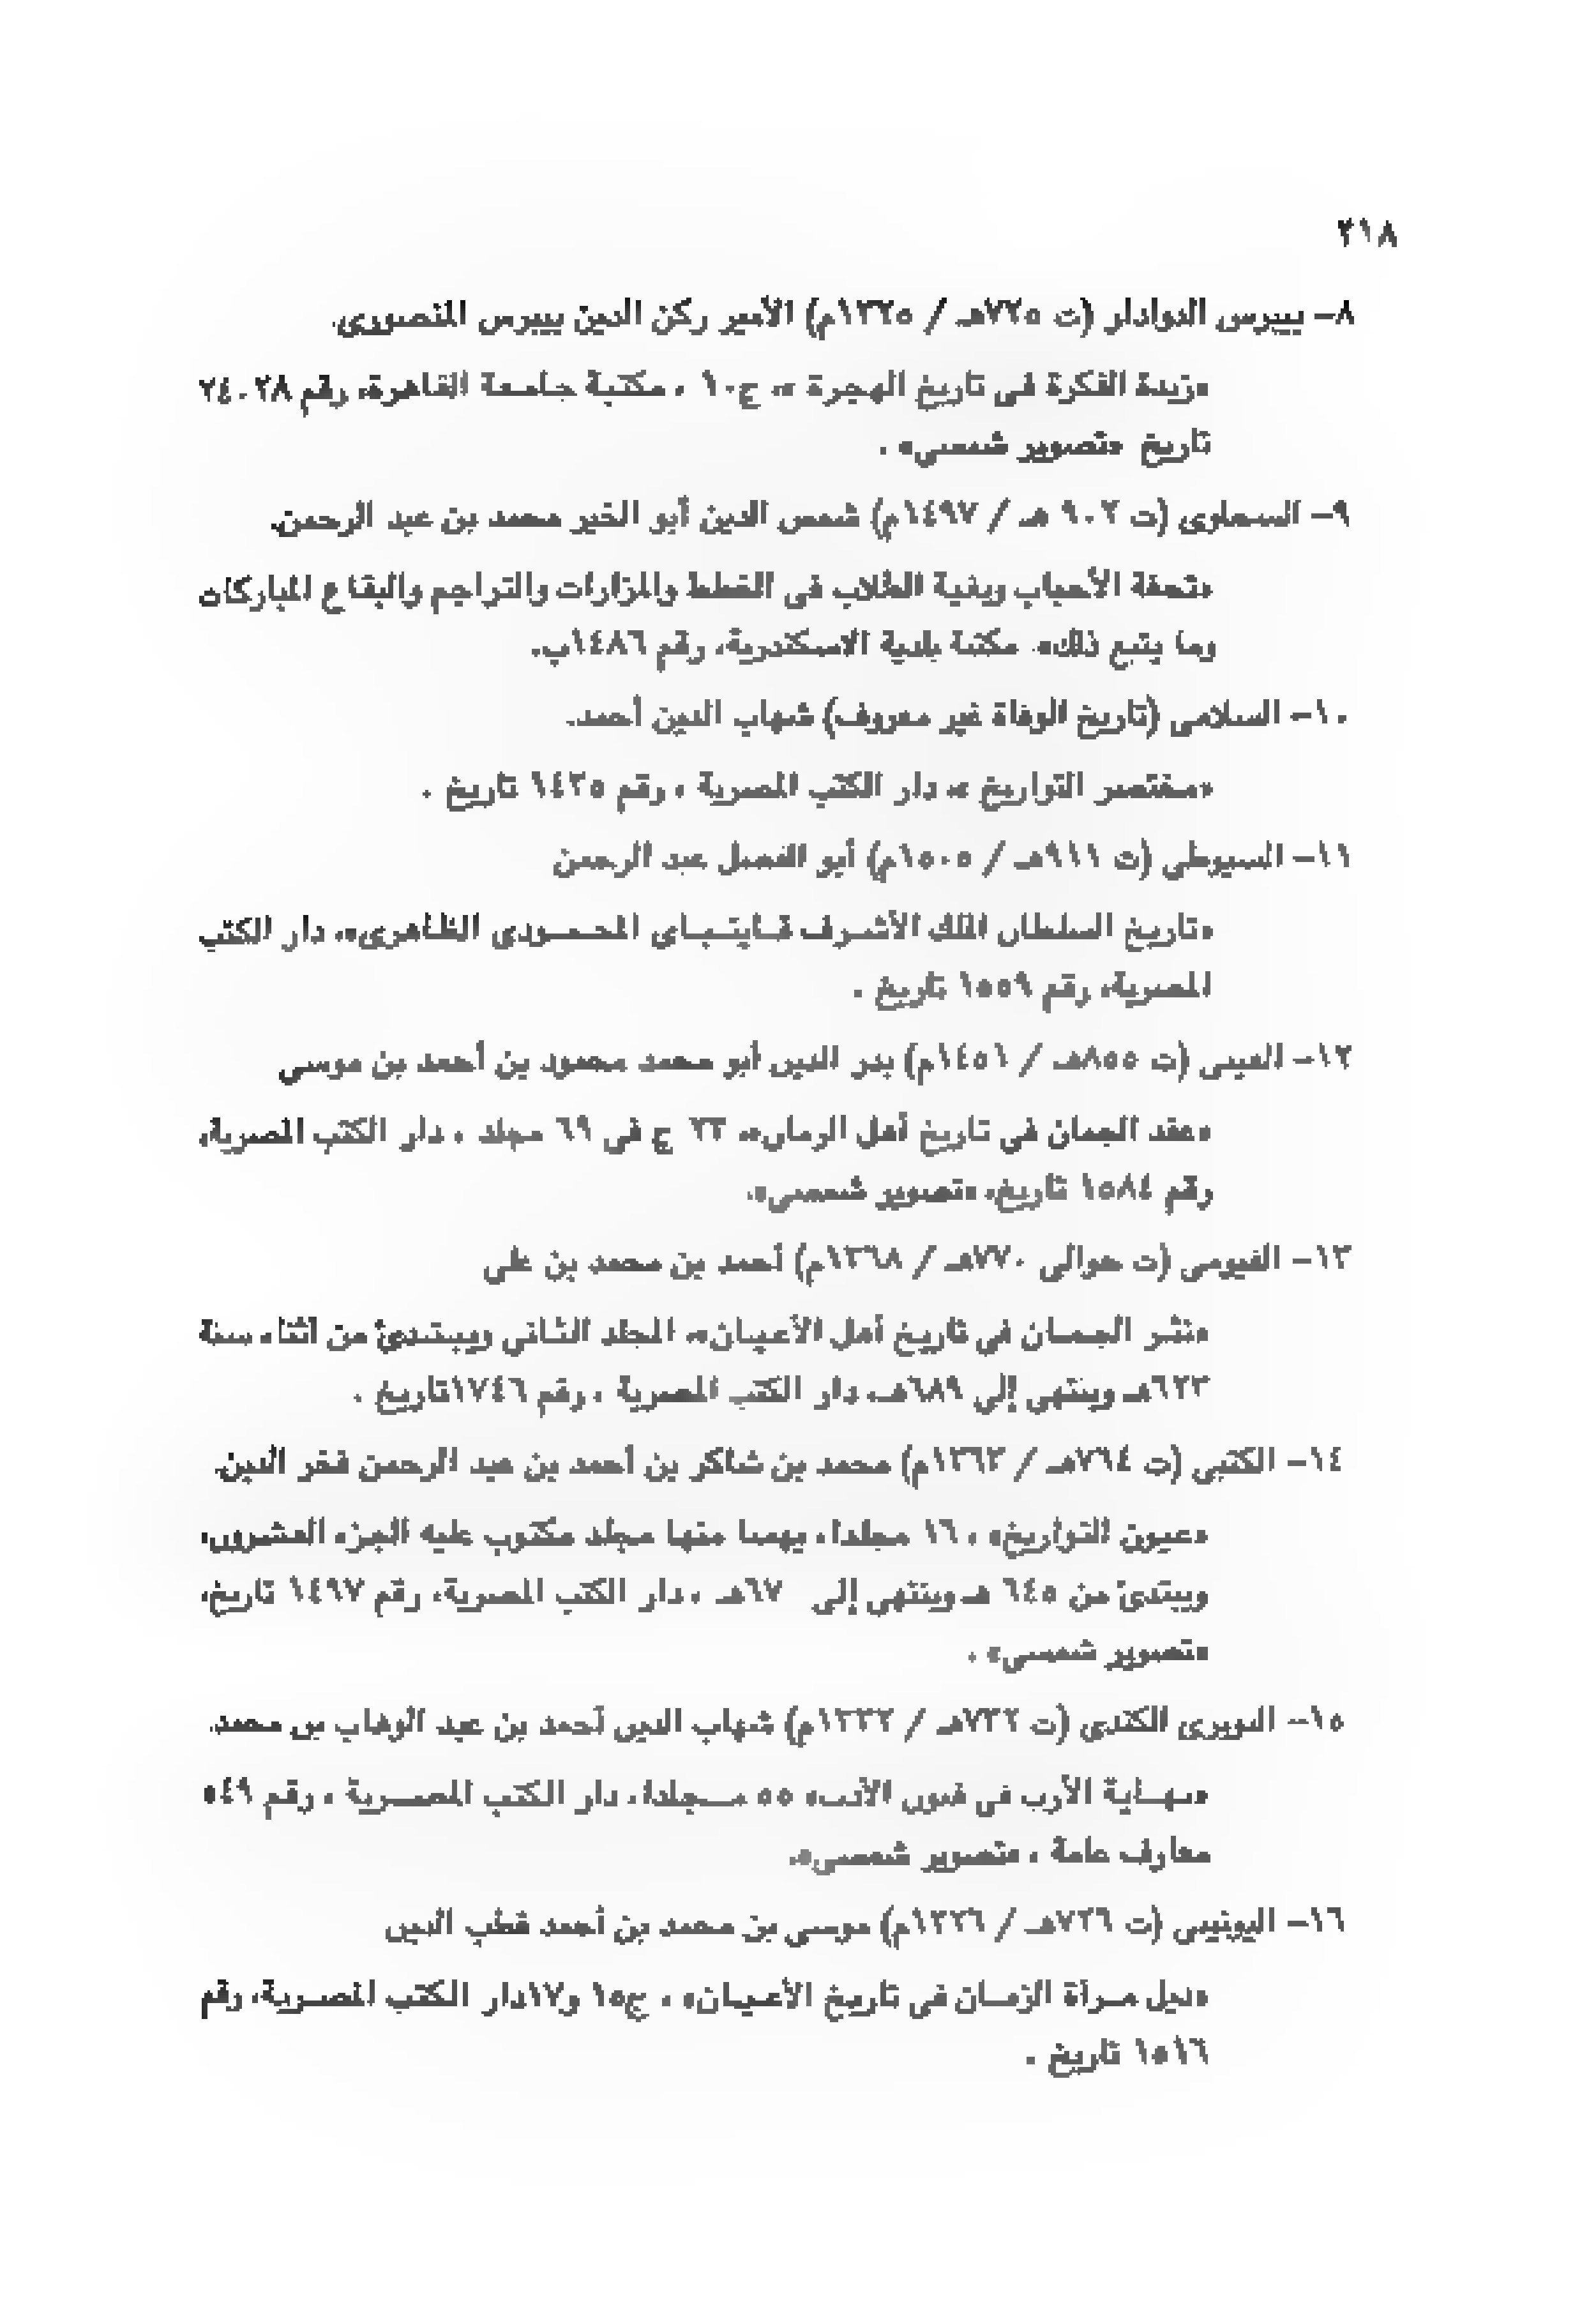 ٢١٨
٨- بيبرس الدوادار (ت ٧٢٥هـ / ١٣٢٥م) الأمير ركن الدين بيبرس المنصورى.
«زبدة الفكرة فى تاريخ الهجرة »، ج١٠ ، مكتبة جامعة القاهرة، رقم ٢٤٠٢٨
تاريخ «تصوير شمسى» .
٩- السخاوى (ت ٩٠٢ هـ / ١٤٩٧م) شمس الدين أبو الخير محمد بن عبد الرحمن.
«تحفة الأحباب وبغية الطلاب فى الخطط والمزارات والتراجم والبقاع المباركات
وما يتبع ذلك» مكتبة بلدية الاسكندرية، رقم ١٤٨٦ب.
١٠- السلامى (تاريخ الوفاة غير معروف) شهاب الدين أحمد.
«مختصر التواريخ »، دار الكتب المصرية ، رقم ١٤٣٥ تاريخ .
١١- السيوطى (ت ٩١١هـ / ١٥٠٥م) أبو الفضل عبد الرحمن
«تاريخ السلطان الملك الأشرف قايتباى المحمودى الظاهرى»، دار الكتب
المصرية، رقم ١٥٥٩ تاريخ .
١٢- العينى (ت ٨٥٥هـ / ١٤٥١م) بدر الدين أبو محمد محمود بن أحمد بن موسى
«عقد الجمان فى تاريخ أهل الزمان»، ٢٣ ج فى ٦٩ مجلد ، دار الكتب المصرية،
رقم ١٥٨٤ تاريخ، «تصوير شمسى».
١٣- الفيومى (ت حوالى ٧٧٠هـ / ١٣٦٨م) أحمد بن محمد بن على
«نثر الجمان فى تاريخ أهل الأعيان»، المجلد الثانى ويبتدئ من أثناء سنة
٦٢٣هـ وينتهى إلى ٦٨٩هـ، دار الكتب المصرية ، رقم ١٧٤٦تاريخ .
١٤- الكتبى (ت ٧٦٤هـ / ١٣٦٣م) محمد بن شاكر بن أحمد بن عبد الرحمن فخر الدين.
«عيون التواريخ» ، ١٦ مجلدا، يهمنا منها مجلد مكتوب عليه الجزء العشرون،
ويبتدئ من ٦٤٥ هـ وينتهى إلى ٦٧هـ ، دار الكتب المصرية، رقم ١٤٩٧ تاريخ،
«تصوير شمسى» .
١٥- النويرى الكندى (ت ٧٣٢هـ / ١٣٣٢م) شهاب الدين أحمد بن عبد الوهاب بن محمد.
«نهاية الأرب فى فنون الأدب» ٥٥ مجلدا، دار الكتب المصرية ، رقم ٥٤٩
معارف عامة ، «تصوير شمسى».
١٦- اليونينى (ت ٧٢٦هـ / ١٣٢٦م) موسى بن محمد بن أحمد قطب الدين
«ذيل مرآة الزمان فى تاريخ الأعيان» ، ج١٥ و١٧دار الكتب المصرية، رقم
١٥١٦ تاريخ .